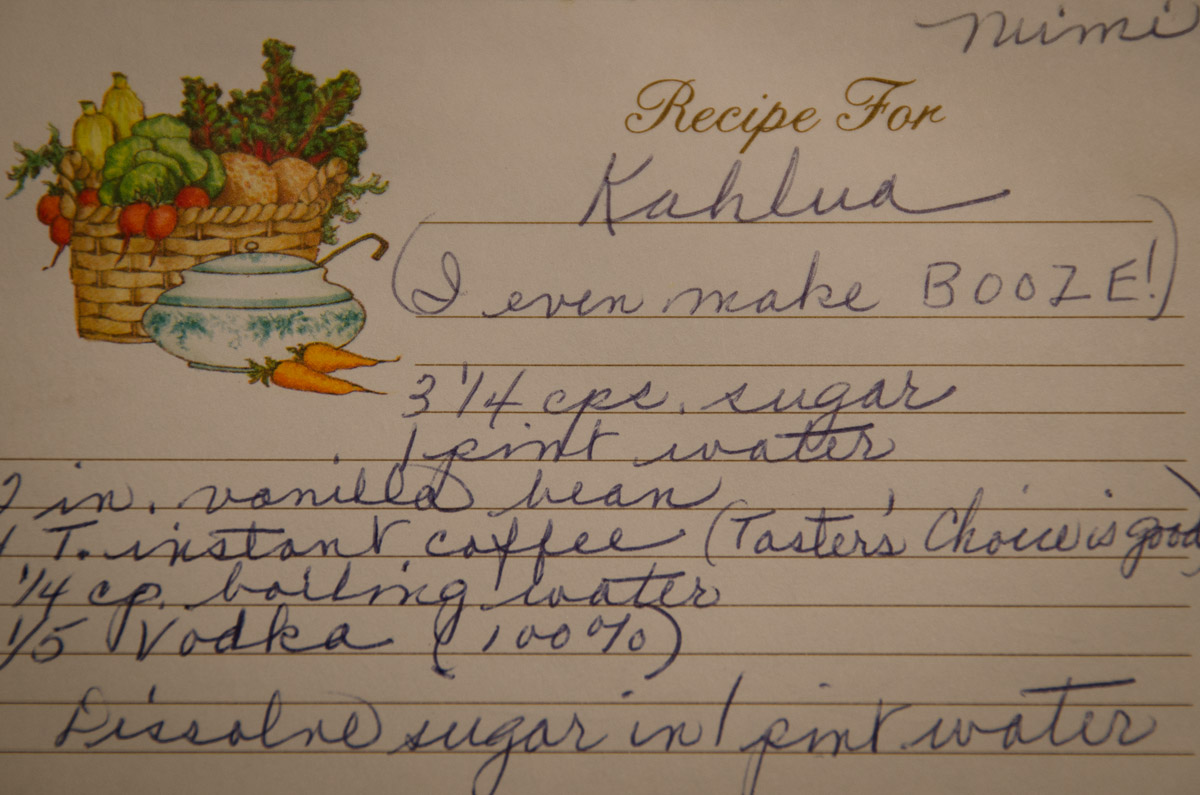 Mimi
Recipe For
Kahlua
(I even make BOOZE!)
3 1/4 cps. sugar
1 pint water
2 in. vanilla bean
T. instant coffee (Taster's Choice is good)
1/4 cp. boiling water
1/5 Vodka (100%)
Dissolve sugar in 1 pint water